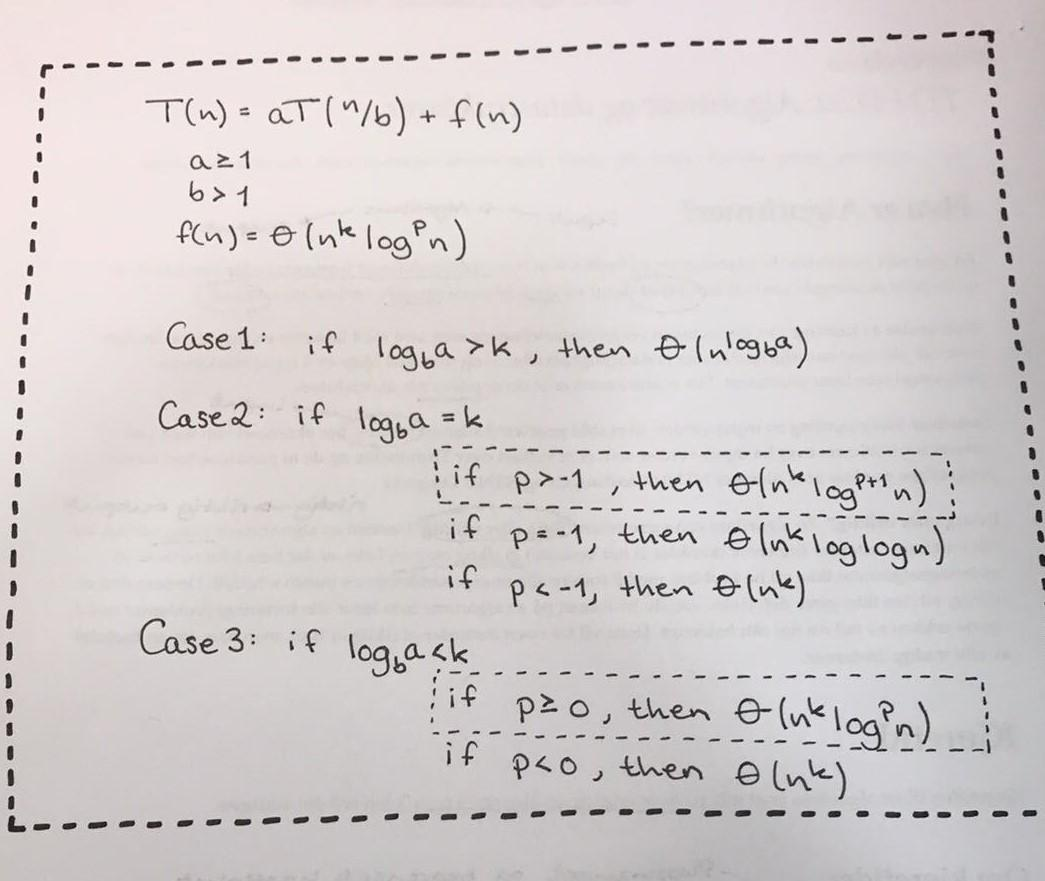 T(n) = aT(n/b) + f(n)
a ≥ 1
b > 1
f(n) = θ(n^k log^p n)
Case 1: if log_b a > k, then θ(n^log_b a)
Case 2: if log_b a = k
if p > -1, then θ(n^k log^p+1 n)
if p = -1, then θ(n^k log log n)
if p < -1, then θ(n^k)
Case 3: if log_b a < k
if p ≥ 0, then θ(n^k log^p n)
if p < 0, then θ(n^k)